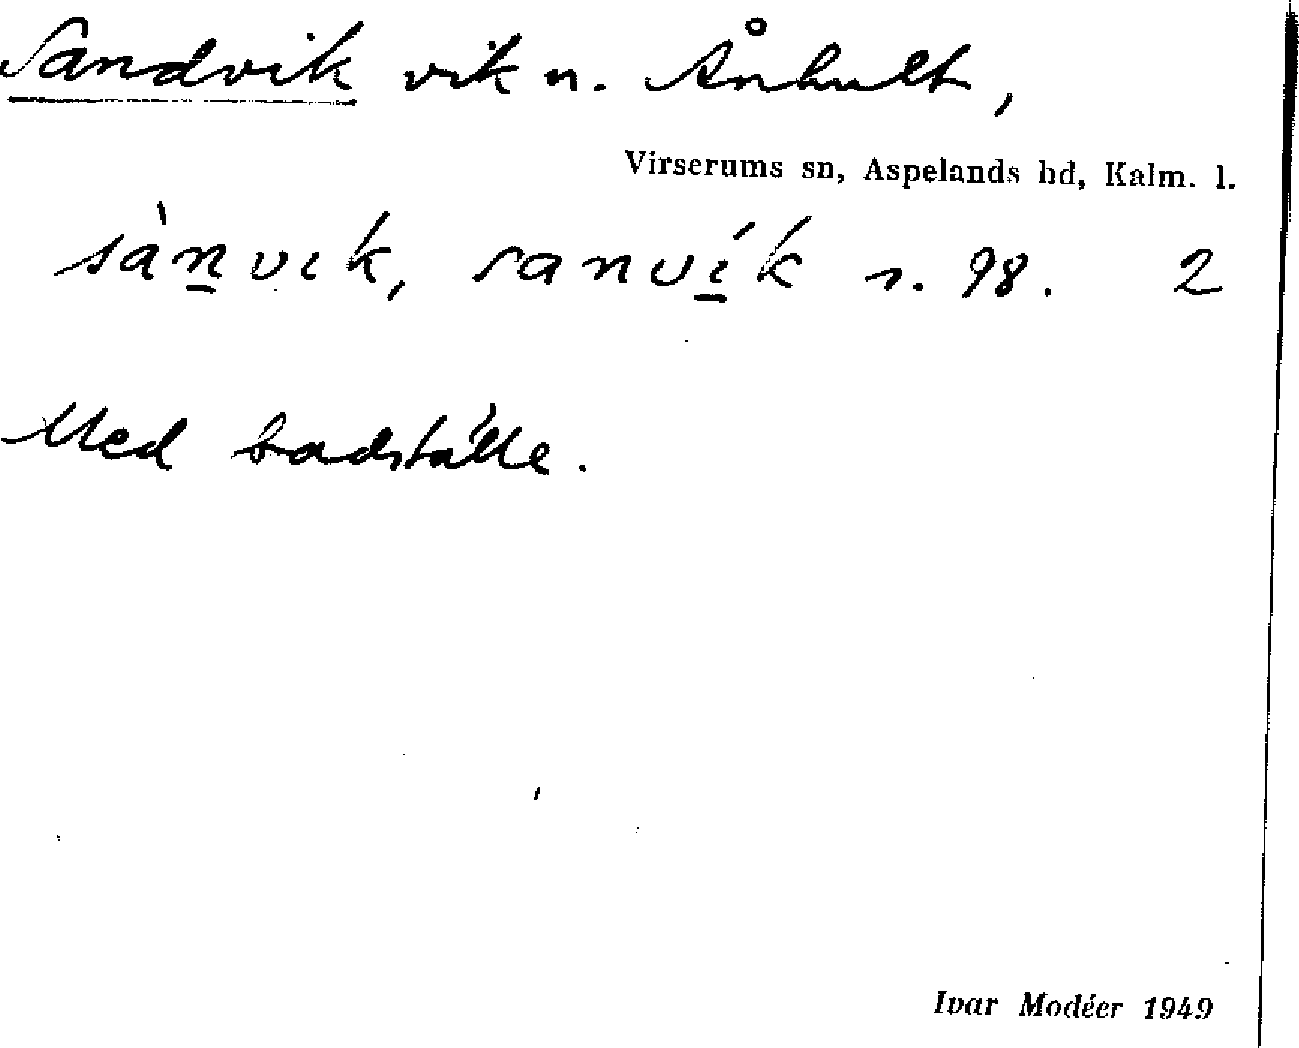 Sandvik vik n. Ånhult,
Virserums sn, Aspelands hd, Kalm. l.
sànvik, sanvík s. 98. 2
Med badställe.
Ivar Modéer 1949